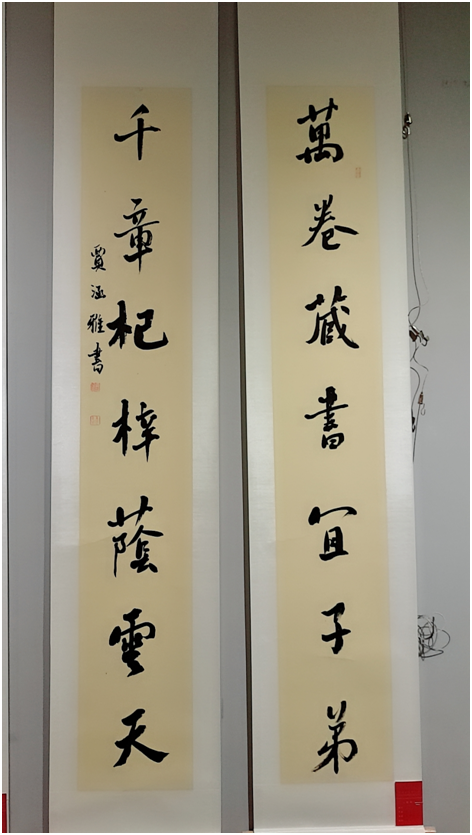 萬卷藏書宜子弟
千章杞梓蔭雲天
奚涵雅書